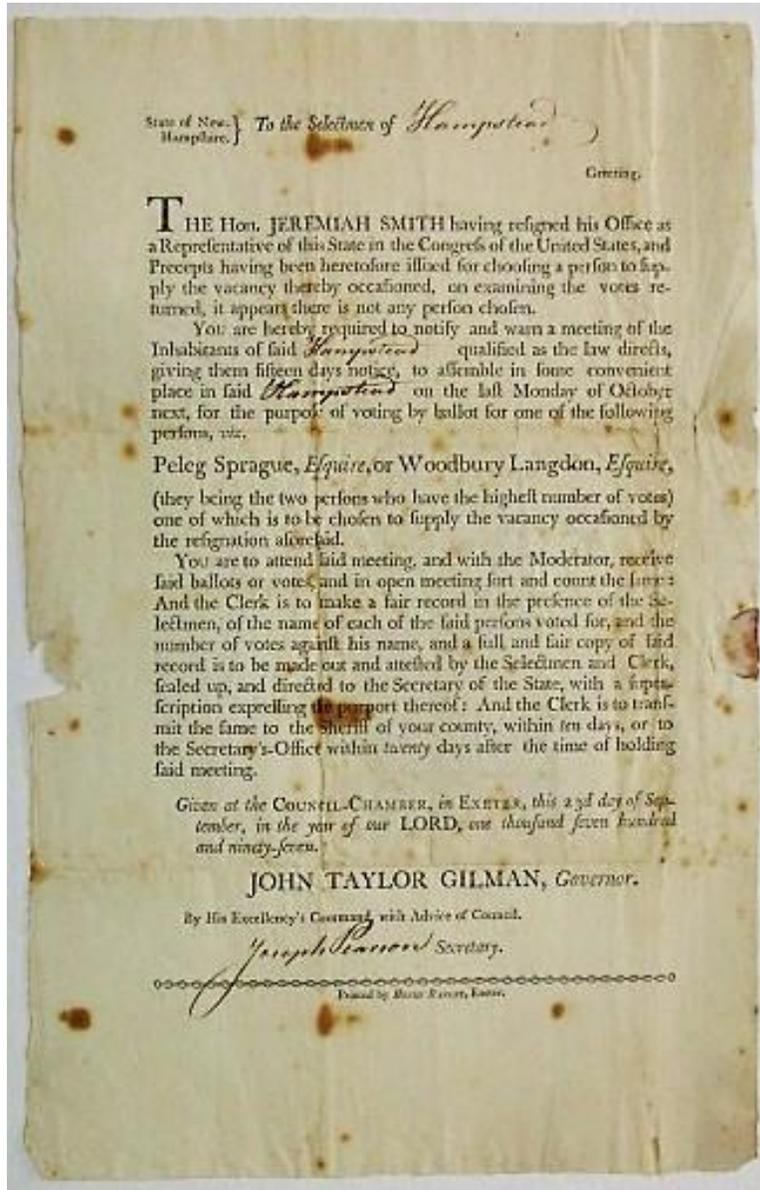 State of New- Hampshire. } To the Selectmen of Hampstead
Greeting.
THE Hon. JEREMIAH SMITH having resigned his Office as
a Representative of this State in the Congress of the United States, and
Precepts having been heretofore issued for choosing a person to sup-
ply the vacancy thereby occasioned, on examining the votes re-
turned, it appears there is not any person chosen.
YOU are hereby required to notify and warn a meeting of the
Inhabitants of said Hampstead qualified as the law directs,
giving them fifteen days notice, to assemble in some convenient
place in said Hampstead on the last Monday of October
next, for the purpose of voting by ballot for one of the following
persons, viz.
Peleg Sprague, Esquire, or Woodbury Langdon, Esquire,
(they being the two persons who have the highest number of votes)
one of which is to be chosen to supply the vacancy occasioned by
the resignation aforesaid.
YOU are to attend said meeting, and with the Moderator, receive
said ballots or votes, and in open meeting sort and count the same:
And the Clerk is to make a fair record in the presence of the Se-
lectmen, of the name of each of the said persons voted for, and the
number of votes against his name, and a full and fair copy of said
record is to be made out and attested by the Selectmen and Clerk,
sealed up, and directed to the Secretary of the State, with a super-
scription expressing the purport thereof: And the Clerk is to trans-
mit the same to the Sheriff of your county, within ten days, or to
the Secretary's-Office within twenty days after the time of holding
said meeting.
Given at the COUNCIL-CHAMBER, in EXETER, this 23d day of Sep-
tember, in the year of our LORD, one thousand seven hundred
and ninety-seven.
JOHN TAYLOR GILMAN, Governor.
By His Excellency's Command, with Advice of Council.
Joseph Pearson Secretary.
Printed by Exeter.